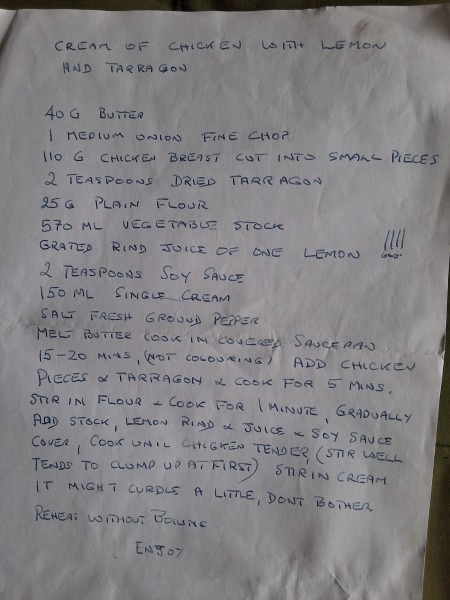 CREAM OF CHICKEN WITH LEMON
AND TARRAGON
40 G BUTTER
1 MEDIUM ONION FINE CHOP
110 G CHICKEN BREAST CUT INTO SMALL PIECES
2 TEASPOONS DRIED TARRAGON
25 G PLAIN FLOUR
570 ML VEGETABLE STOCK
GRATED RIND JUICE OF ONE LEMON !!!!
2 TEASPOONS SOY SAUCE
150 ML SINGLE CREAM
SALT FRESH GROUND PEPPER
MELT BUTTER COOK IN COVERED SAUCEPAN
15-20 MINS, (NOT COLOURING) ADD CHICKEN
PIECES & TARRAGON & COOK FOR 5 MINS.
STIR IN FLOUR & COOK FOR 1 MINUTE, GRADUALLY
ADD STOCK, LEMON RIND & JUICE & SOY SAUCE
COVER, COOK UNIL CHICKEN TENDER (STIR WELL
TENDS TO CLUMP UP AT FIRST) STIR IN CREAM
IT MIGHT CURDLE A LITTLE, DONT BOTHER
REHEAT WITHOUT BOILING
ENJOY